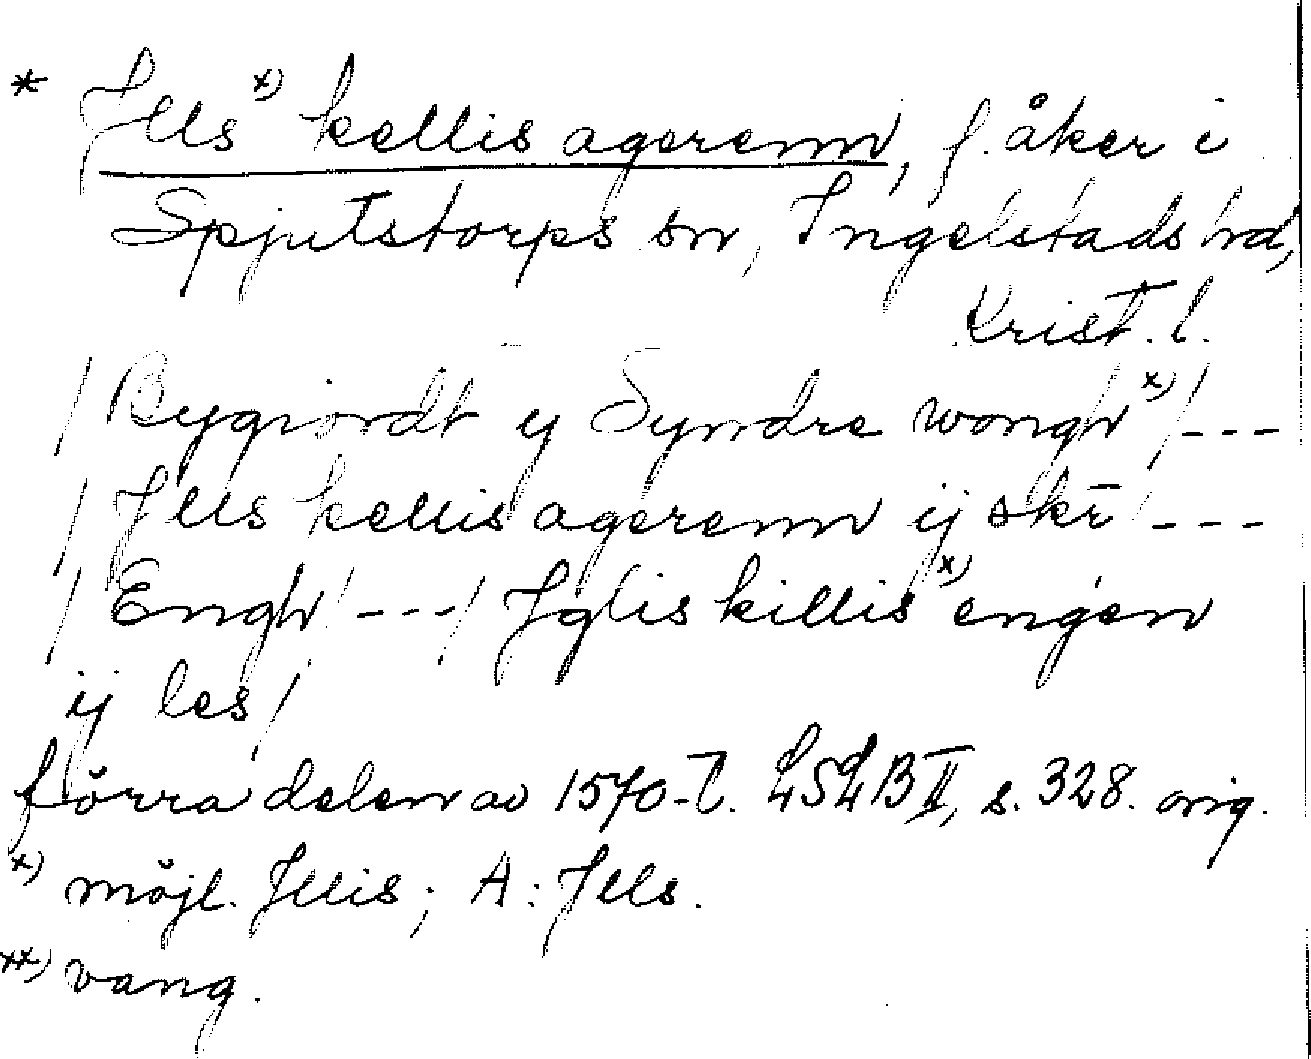 * Jlls x) kellis agerenn, f. åker i
Spjutstorps sn, Ingelstads hd,
Krist. l.
/Bygiordt y Syndre wongh x)/---
/Jlls kellis agerenn ij skr/---
/Engh/---/Jglis killis x) engen
ij les/
förra delen av 1570-t. LSLB II, s. 328. orig.
x) möjl. Jllis; A: Jlls.
xx) vang.